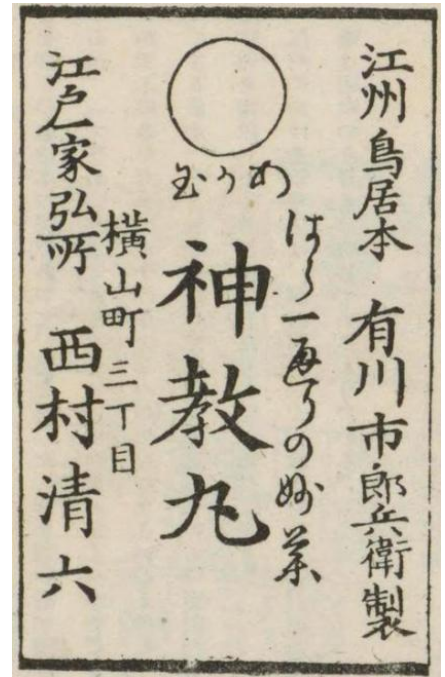 江州鳥居本 有川市郎兵衛製
はら一通りの妙薬
あか玉
神教丸
横山町三丁目
江戸一家弘所 西村清六